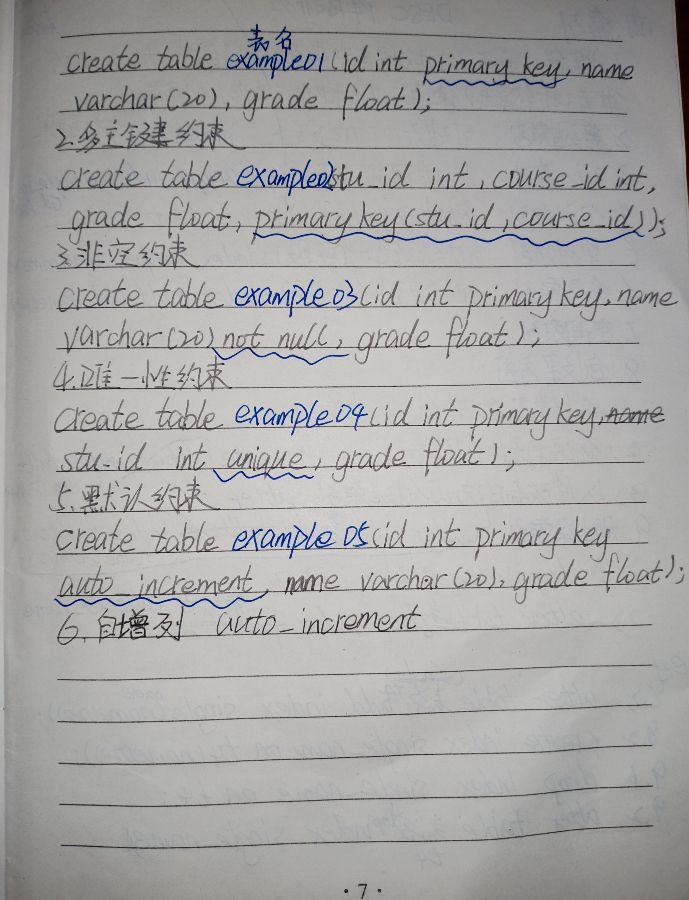 表名
create table example01(id int primary key, name
varchar(20), grade float);
2.多主键约束
create table example02stu_id int, course_id int,
grade float, primary key(stu_id, course_id));
3.非空约束
create table example03(id int primary key, name
varchar(20) not null, grade float);
4.唯一性约束
create table example04(id int primary key, name
stu_id int unique, grade float);
5.默认约束
create table example05(id int primary key
auto_increment, name varchar(20), grade float);
6.自增列 auto_increment
·7·